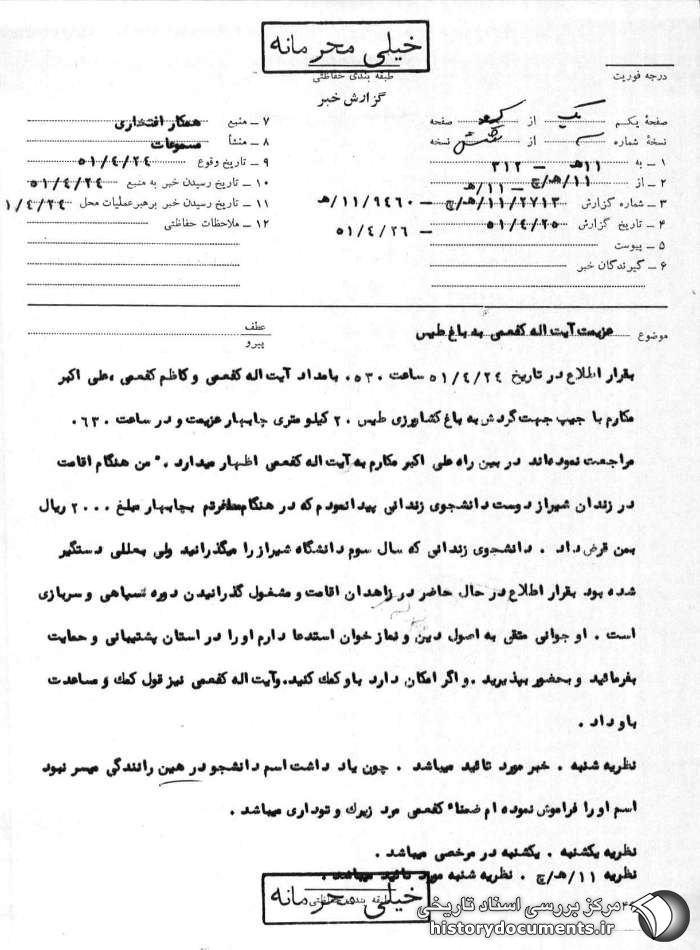 خیلی محرمانه
طبقه بندی حفاظتی
گزارش خبر
درجه فوریت
صفحهٔ یکم یک از یک صفحه
نسخهٔ شماره از شش نسخه
۱ ـ به ۱۱هـ ـ ۳۱۲
۲ ـ از ۱۱/هـ/چ ـ ۱۱/هـ
۳ ـ شماره گزارش ۱۱/۲۷۱۳/هـ/چ ـ ۱۱/۹۴۶۰/هـ
۴ ـ تاریخ گزارش ۵۱/۴/۲۵ ـ ۵۱/۴/۲۶
۵ ـ پیوست
۶ ـ گیرندگان خبر
۷ ـ منبع همکار افتخاری
۸ ـ منشأ مسموعات
۹ ـ تاریخ وقوع ۵۱/۴/۲۴
۱۰ ـ تاریخ رسیدن خبر به منبع ۵۱/۴/۲۴
۱۱ ـ تاریخ رسیدن خبر برهبرعملیات محل ۱/۴/۲۴
۱۲ ـ ملاحظات حفاظتی
موضوع عزیمت آیت اله کفعمی به باغ طیس
عطف
پیرو
بقرار اطلاع در تاریخ ۵۱/۴/۲۴ ساعت ۰۵۳۰ بامداد آیت اله کفعمی و کاظم کفعمی ،علی اکبر
مکارم با جیپ جهت گردش به باغ کشاورزی طیس ۲۰ کیلو متری چابهار عزیمت و در ساعت ۰۶۳۰
مراجعت نموده‌اند در بین راه علی اکبر مکارم به آیت اله کفعمی اظهار میدارد ." من هنگام اقامت
در زندان شیراز دوست دانشجوی زندانی پیدا نمودم که در هنگام مسافرتم بچابهار مبلغ ۲۰۰۰ ریال
بمن قرض داد . دانشجوی زندانی که سال سوم دانشگاه شیراز را میگذرانید ولی بعللی دستگیر
شده بود بقرار اطلاع در حال حاضر در زاهدان اقامت و مشغول گذرانیدن دوره سپاهی و سربازی
است . او جوانی متقی به اصول دین و نماز خوان استدعا دارم او را در استان پشتیبانی و حمایت
بفرمائید و بحضور بپذیرید .و اگر امکان دارد باو کمک کنید.وآیت اله کفعمی نیز قول کمک و مساعدت
باو داد .
نظریه شنبه . خبر مورد تائید میباشد . چون یاد داشت اسم دانشجو در هین رانندگی میسر نبود
اسم او را فراموش نموده ام ضمناً کفعمی مرد زیرک و توداری میباشد .
نظریه یکشنبه . یکشنبه در مرخصی میباشد .
نظریه ۱۱/هـ/چ . نظریه شنبه مورد تائید میباشد .
خیلی محرمانه
طبقه بندی حفاظتی
مرکز بررسی اسناد تاریخی
historydocuments.ir